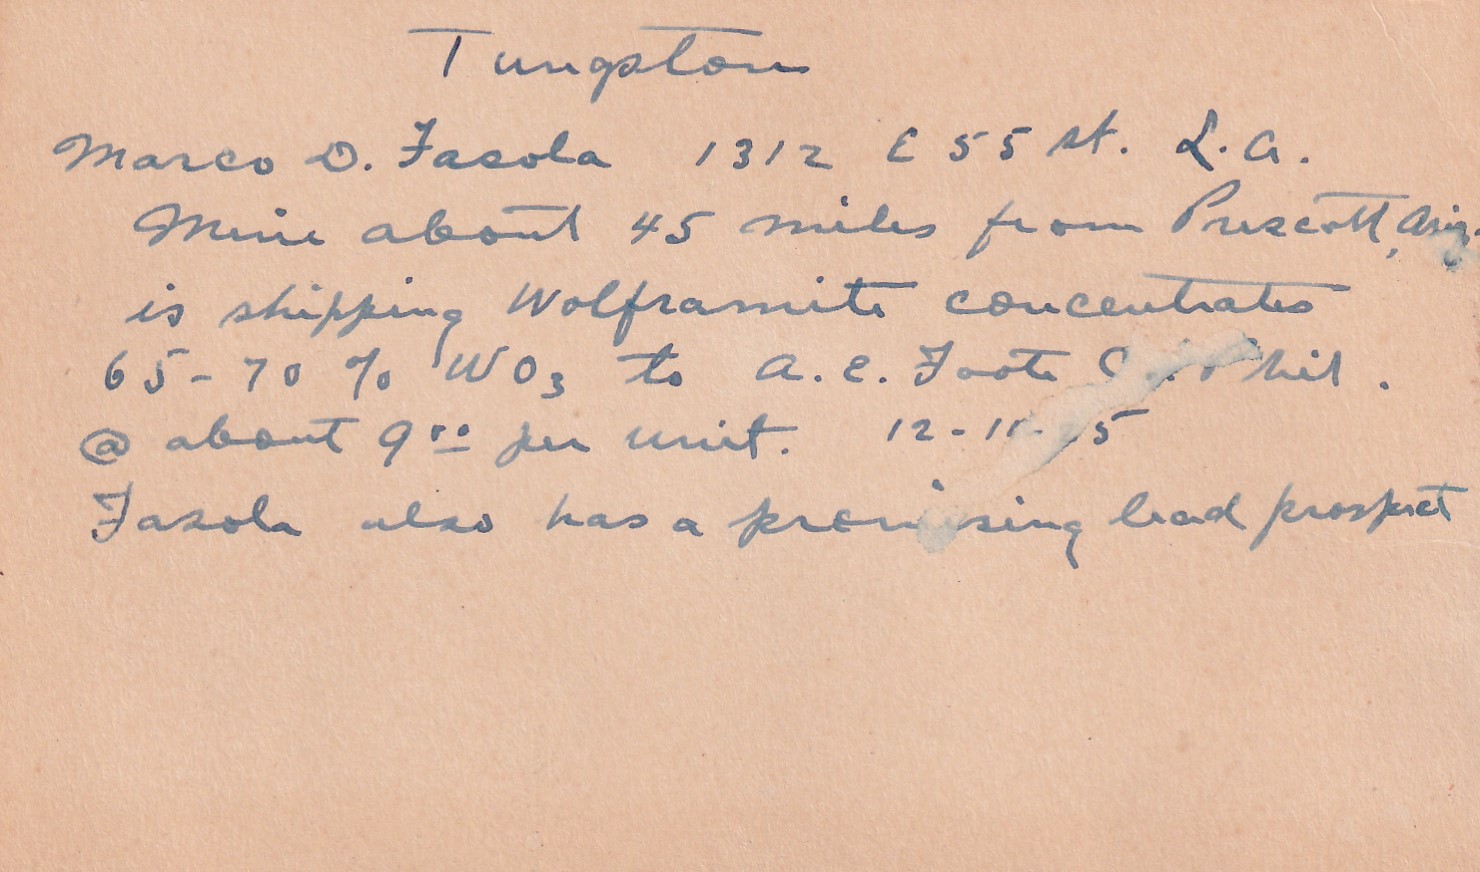 Tungston
Marco D. Fasola 1312 E 55 st. L.A.
Mine about 45 miles from Prescott, Ariz.
is shipping Wolframite concentrates
65-70 % WO3 to A. E. Foote Phil.
@ about 9 00 per unit.
Fasola also has a promising lead prospect